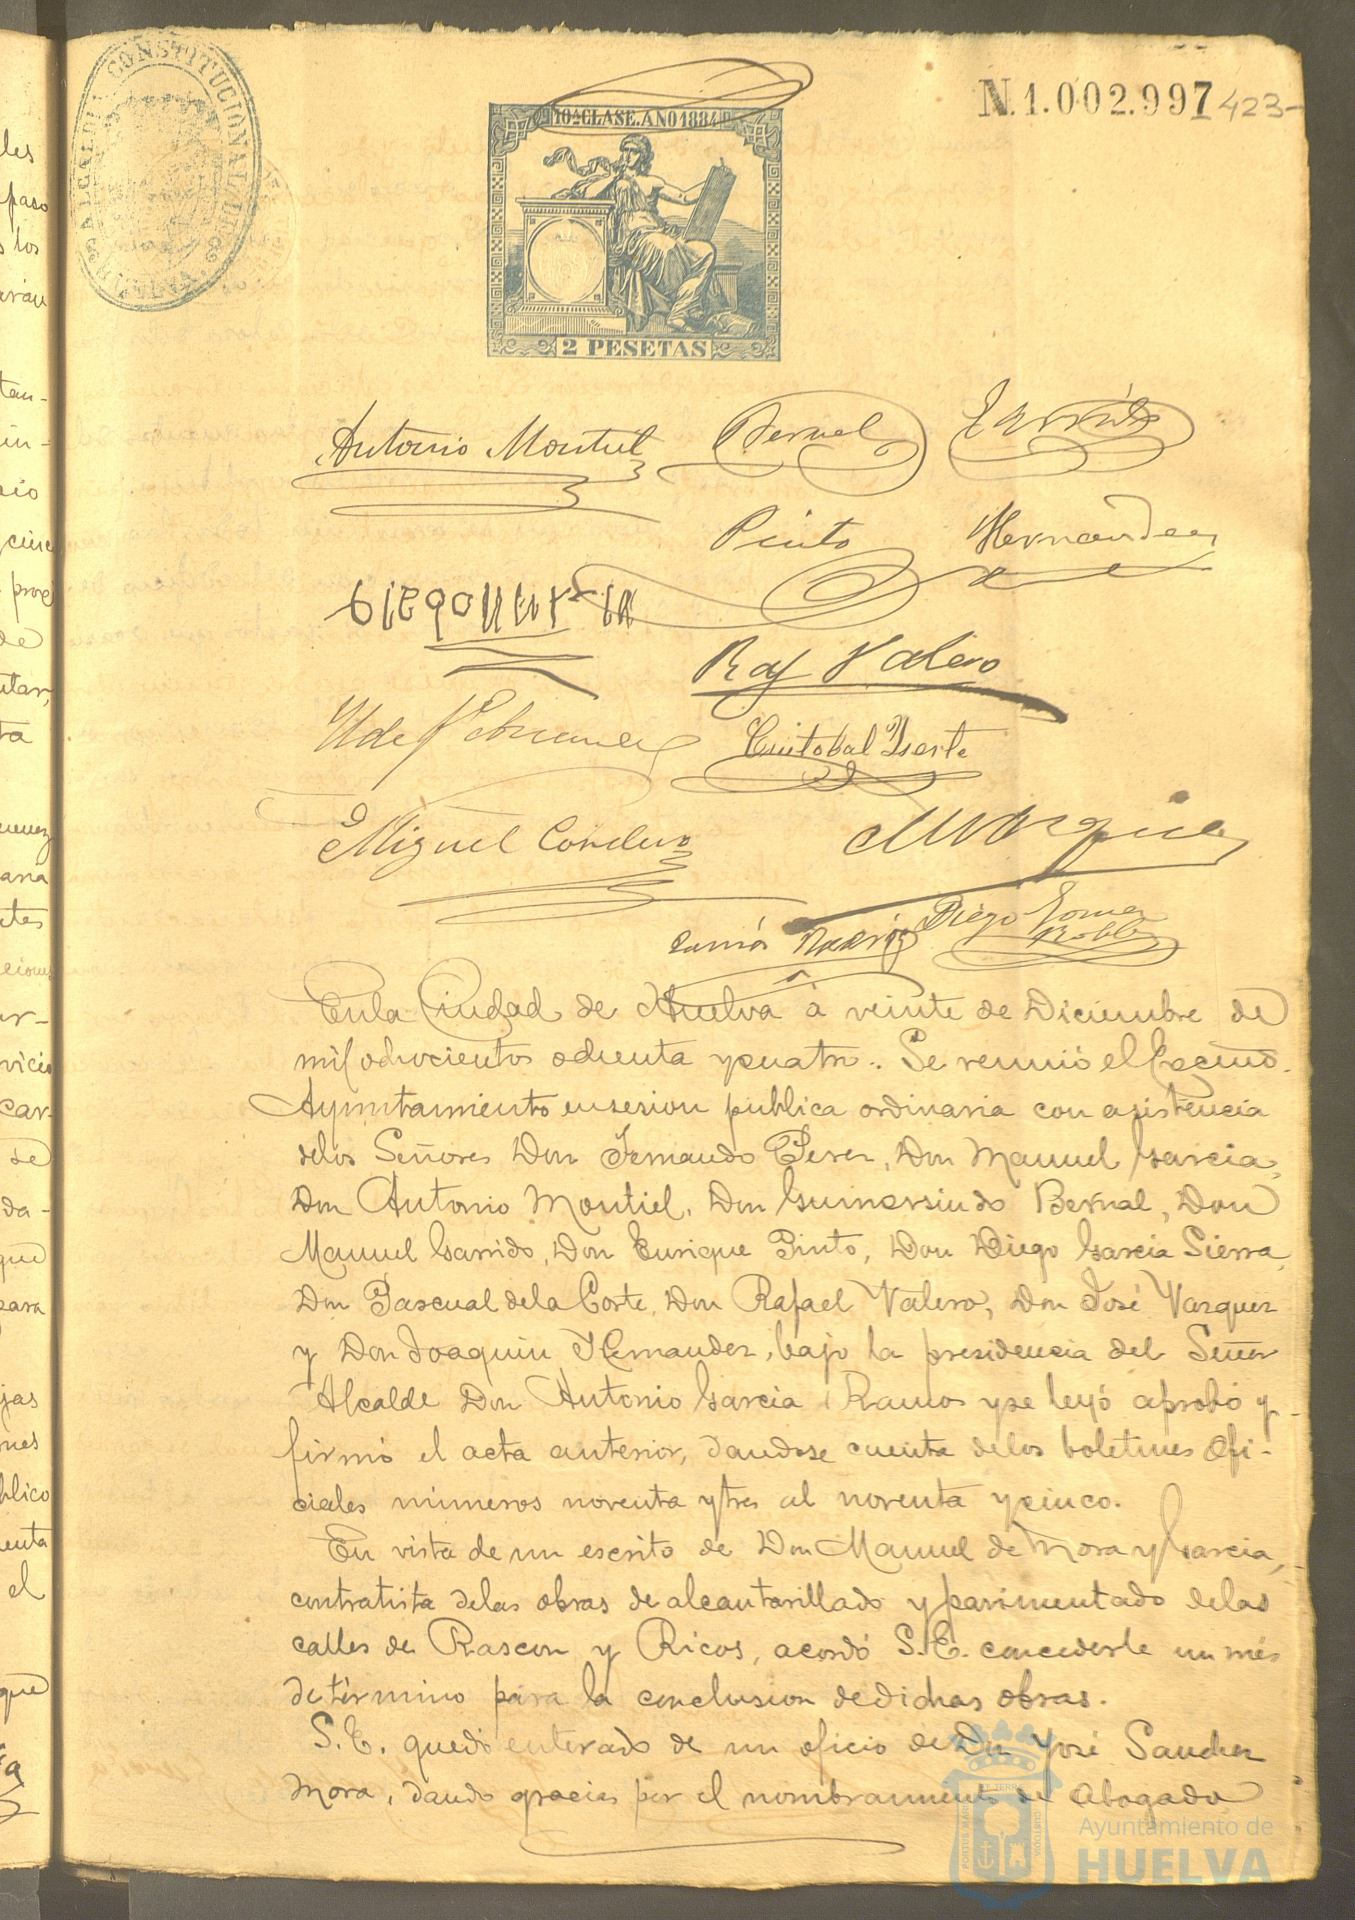 ALCALDIA CONSTITUCIONAL DE
HUELVA.
10ª CLASE. AÑO 1884
2 PESETAS
N.1.002.997
423-
Antonio Montiel
Bernal
Garrido
Pinto
Hernandez
Raf Valero
Cristobal Yserte
Miguel Cordero
MVazquez
Diego Gomez
Robles
En la Ciudad de Huelva á veinte de Diciembre de
mil ochocientos ochenta y cuatro. Se reunió el Excmo.
Ayuntamiento en sesion publica ordinaria con asistencia
de los Señores Don Fernando Perez, Don Manuel Garcia,
Don Antonio Montiel, Don Gumersindo Bernal, Don
Manuel Garrido, Don Enrique Pinto, Don Diego Garcia Sierra,
Don Pascual de la Corte, Don Rafael Valero, Don José Vazquez
y Don Joaquin Hernandez, bajo la presidencia del Señor
Alcalde Don Antonio Garcia Ramos y se leyó aprobó y
firmó el acta anterior, dandose cuenta de los boletines ofi-
ciales números noventa y tres al noventa y cinco.
En vista de un escrito de Don Manuel de Mora y Garcia,
contratista de las obras de alcantarillado y pavimentado de las
calles de Rascon y Ricos, acordó S.E. concederle un més
de término para la conclusion de dichas obras.
S.E. quedó enterado de un oficio de Dn José Sanchez
Mora, dando gracias por el nombramiento de Abogado
PORTUS MARIS
ET TERRÆ
CUSTODIA
Ayuntamiento de
HUELVA